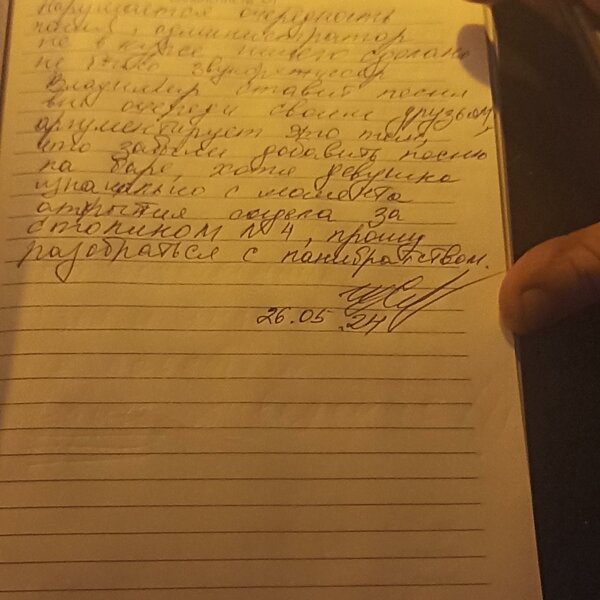 нарушается очередность
песен, администратор
не в курсе ничего сделано
не было звукорежиссер
Владимир ставит песни
вне очереди своим друзьям,
аргументирует это тем,
что забыли добавить песню
на баре, хотя девушка
изначально с момента
открытия сидела за
столиком №4, прошу
разобраться с панибратством.
26.05.24